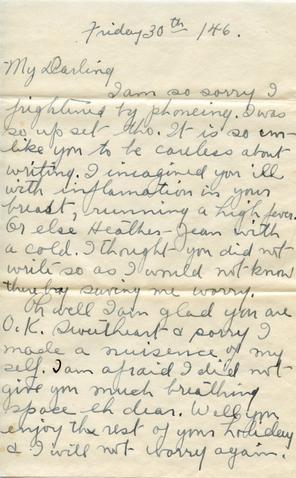 Friday 30th /46.
My Darling
I am so sorry I
frightured by phoneing. I was
so up set tho. It is so un-
like you to be careless about
writing. I imagined you ill
with inflamation in your
breast, running a high fever.
Or else Heather-Jean with
a cold. I thought you did not
write so as I would not know
thereby saving me worry.
Oh well I am glad you are
O.K. Sweetheart & sorry I
made a nuisence of my
self. I am afraid I did not
give you much breathing
space eh dear. Well you
enjoy the rest of your holiday
& I will not worry again.